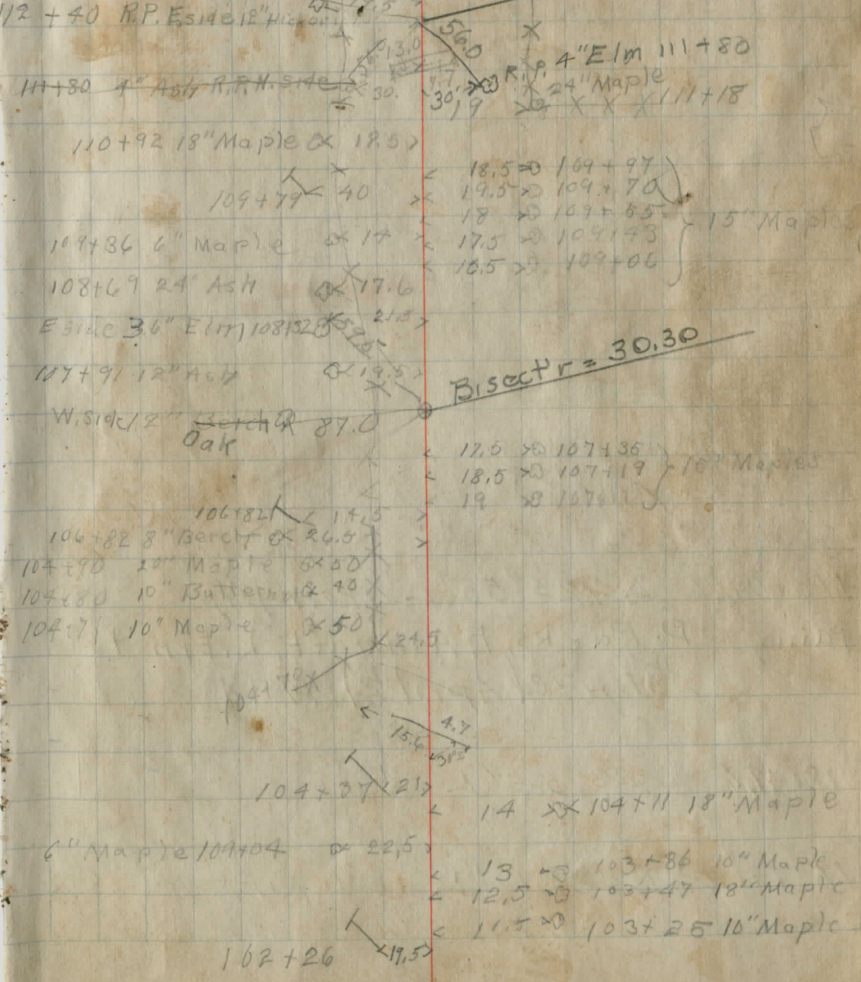 112 + 40 R.P. E side 12"
56.0
13.0
R.P. 4" Elm 111+80
111+80 4" Ash R.P. H. side
30.
30'
24" Maple
19
111+18
110+92 18" Maple 18.5
18.5 109+97
109+79 40
19.5 109+70
18 109+55
15" Maples
109+36 6" Maple 14
17.5 109+43
16.5 109+06
108+69 24" Ash 17.6
E side 36" Elm 108+32 21.5
59.5
Bisect'r = 30.30
107+91 12" Ash 19.5
W. side 12" Berch 87.0
Oak
17.5 107+36
18.5 107+19
Maples
19
106+82 14.5
106+82 8" Berch 26.5
104+90 20" Maple 50
104+80 10" Butternut 40
104+71 10" Maple 50
24.5
104+79
4.7
15.6
104+37 21
14 104+11 18" Maple
6" Maple 104+04 22.5
13 103+86 10" Maple
12.5 103+47 18" Maple
11.5 103+25 10" Maple
102+26 19.5